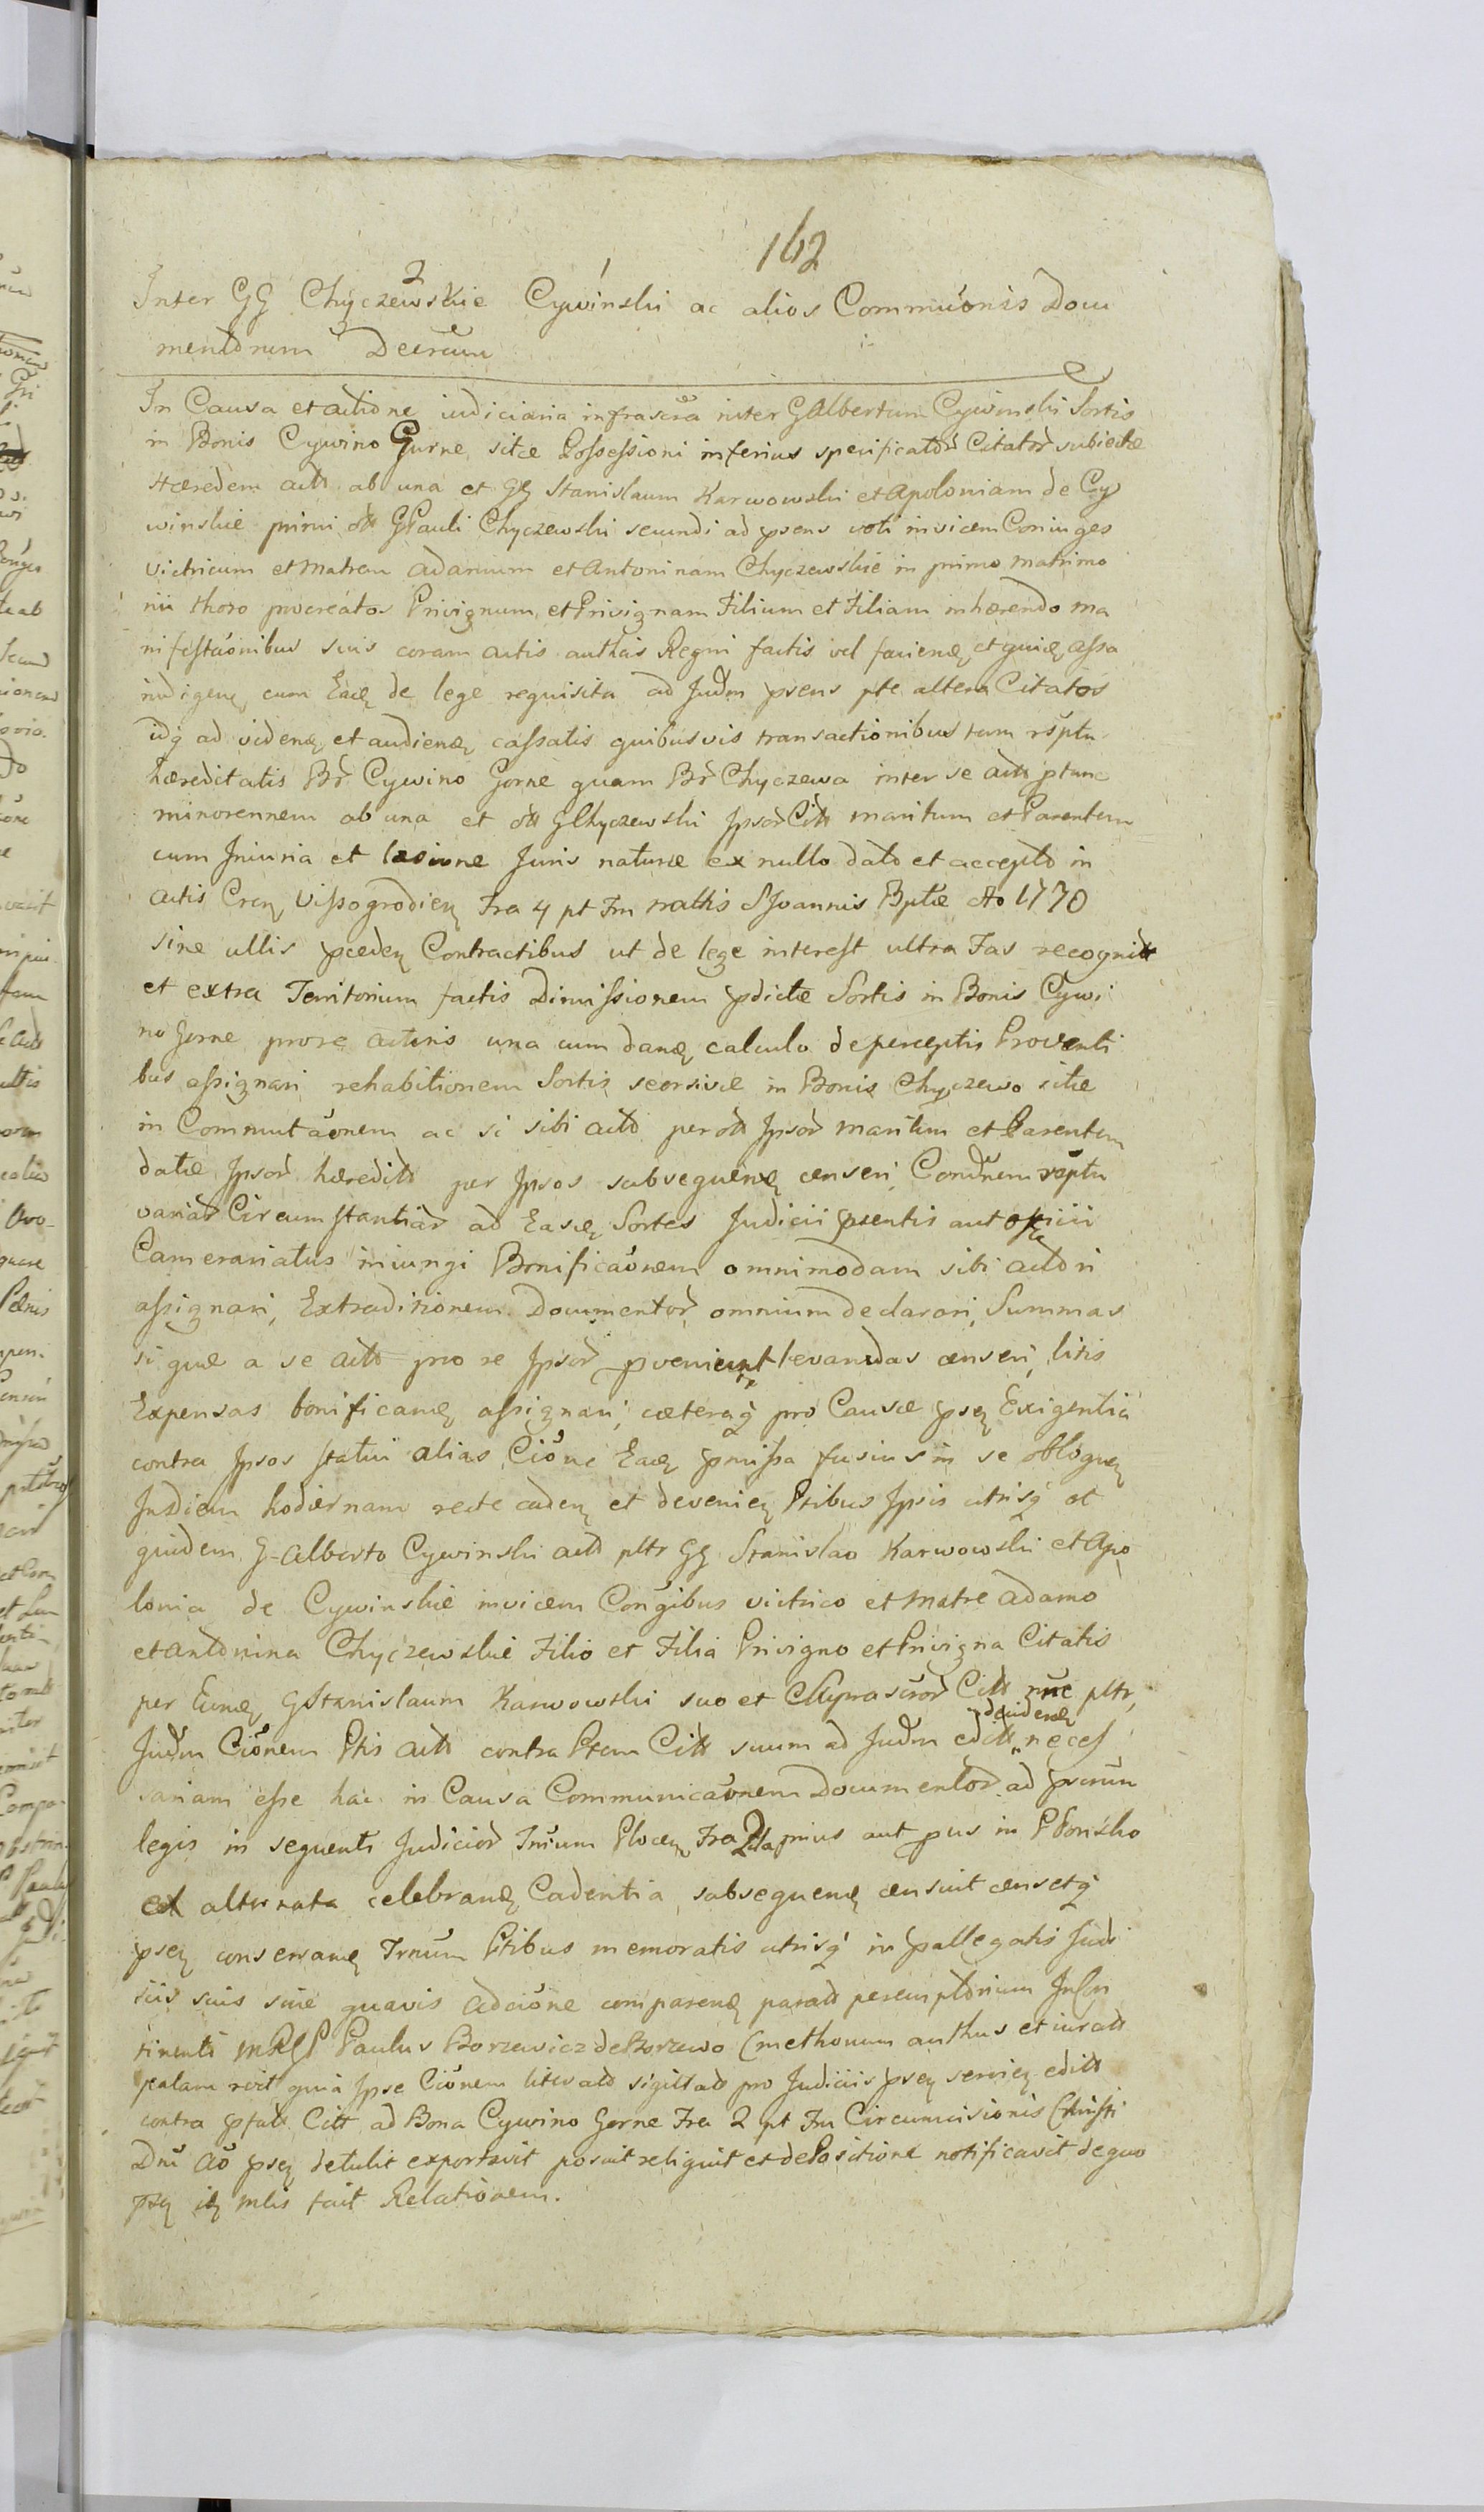 162
2 1
Inter GG Chyczewskie Cywinski ac alios Commuonis Docu
mentorum Decretum
In Causa et actione iudiciaria infrascra inter G Albertum Cywinski Sortis
in Bonis Cywino Gurne sitæ Possessioni inferius specificator Citator subiectæ
Hæredem actt ab una et GG Stanislaum Karwowski et Apoloniam de Cy
winskie primi ott G Pauli Chyczewski secundi ad psens voti invicem Coniuges
victricum et Matrem Adamum et Antoninam Chyczewskie in primo matrimo
nii thoro procreatos Privignum et Privignam Filium et Filiam inhærendo ma
nifestaonibus suis coram actis authcis Regni factis vel faciend et quid assa
indigend cum Eacd de lege requisita ad Judm psens pte altera Citatos
idq ad videnda et audienda cassatis quibusvis transactionibus tam rsptu
hæreditatis Br Cywino Gorne quam Br Chyczewa inter se actt ptunc
minorennem ab una et ott G Chyczewski Ipsor Citt maritum et Parentem
cum Iniuria et læsione Juris naturæ ex nullo dato et accepto in
actis Cren Vissogrodien Fra 4 pt Fm nattis S Joannis Bptæ Ao 1770
sine ullis pceden Contractibus ut de lege interest ultra Fas recognitt
et extra Territorium factis Dimissionem pdictæ Sortis in Bonis Cywi
no Gorne pro re actoris una cum danda calculo de perceptis Proventi
bus assignari rehabitionem Sortis seorsivæ in Bonis Chyczewo sitæ
in Commutaonem ac si sibi actt per ott Ipsor maritum et Parentem
datæ Ipsor hæreditt per Ipsos subsequend censeri, Condnem rsptu
variar Circumstantiar ad Easd Sortes Judicii psentis aut officii
Camerariatus iniungi Bonificaonem omnimodam sibi actori
assignari, Extraditionem Documentor omnium declarari, Summas
si quæ a se actt pro re Ipsor pvenient levandas censeri, litis
Expensas bonificand assignari, cæteraq pro Causæ psen Exigentia
contra Ipsos statui alias Cione Ead pmissa fusius in se obloquen
In Diem hodiernam recte caden et devenien Ptibus Ipsis utrisq et
quidem G Alberto Cywinski actt pltr GG Stanislao Karwowski et Apo
lonia de Cywinskie invicem Congibus victrico et Matre Adamo
et Antonina Chyczewskie Filio et Filia Privigno et Privigna Citatis
per Eumd G Stanislaum Karwowski suo et Suprascror Citt nne pltr,
decidend
Judm Cionem Ptis actt contra Ptem Citt suum ad Judm editt neces
sariam esse hac in Causa Communicaonem Documentor ad pscrum
legis in sequenti Judicior Trium Plocen Fra 2da prius aut pus in Płonsko
ex alternata celebrand Cadentia subsequend censuit censetq
psen conservand Trnum Ptibus memoratis utrisq in pallegatis Judi
ciis suis sine quavis adcione comparend paratt peremptorium In Con
tinenti MRGS Paulus Borzewicz de Borzewo Cmethonum authus et iuratt
palam rcit quia Ipse Cionem literatt sigillatt pro Judiciis psen servien editt
contra pfatt Citt ad Bona Cywino Gorne Fra 2 pt Fm Circumcisionis Christi
Dni Ao psen detulit exportavit posuit reliquit et de Positione notificavit de quo
psen id Mlis fait Relationem.